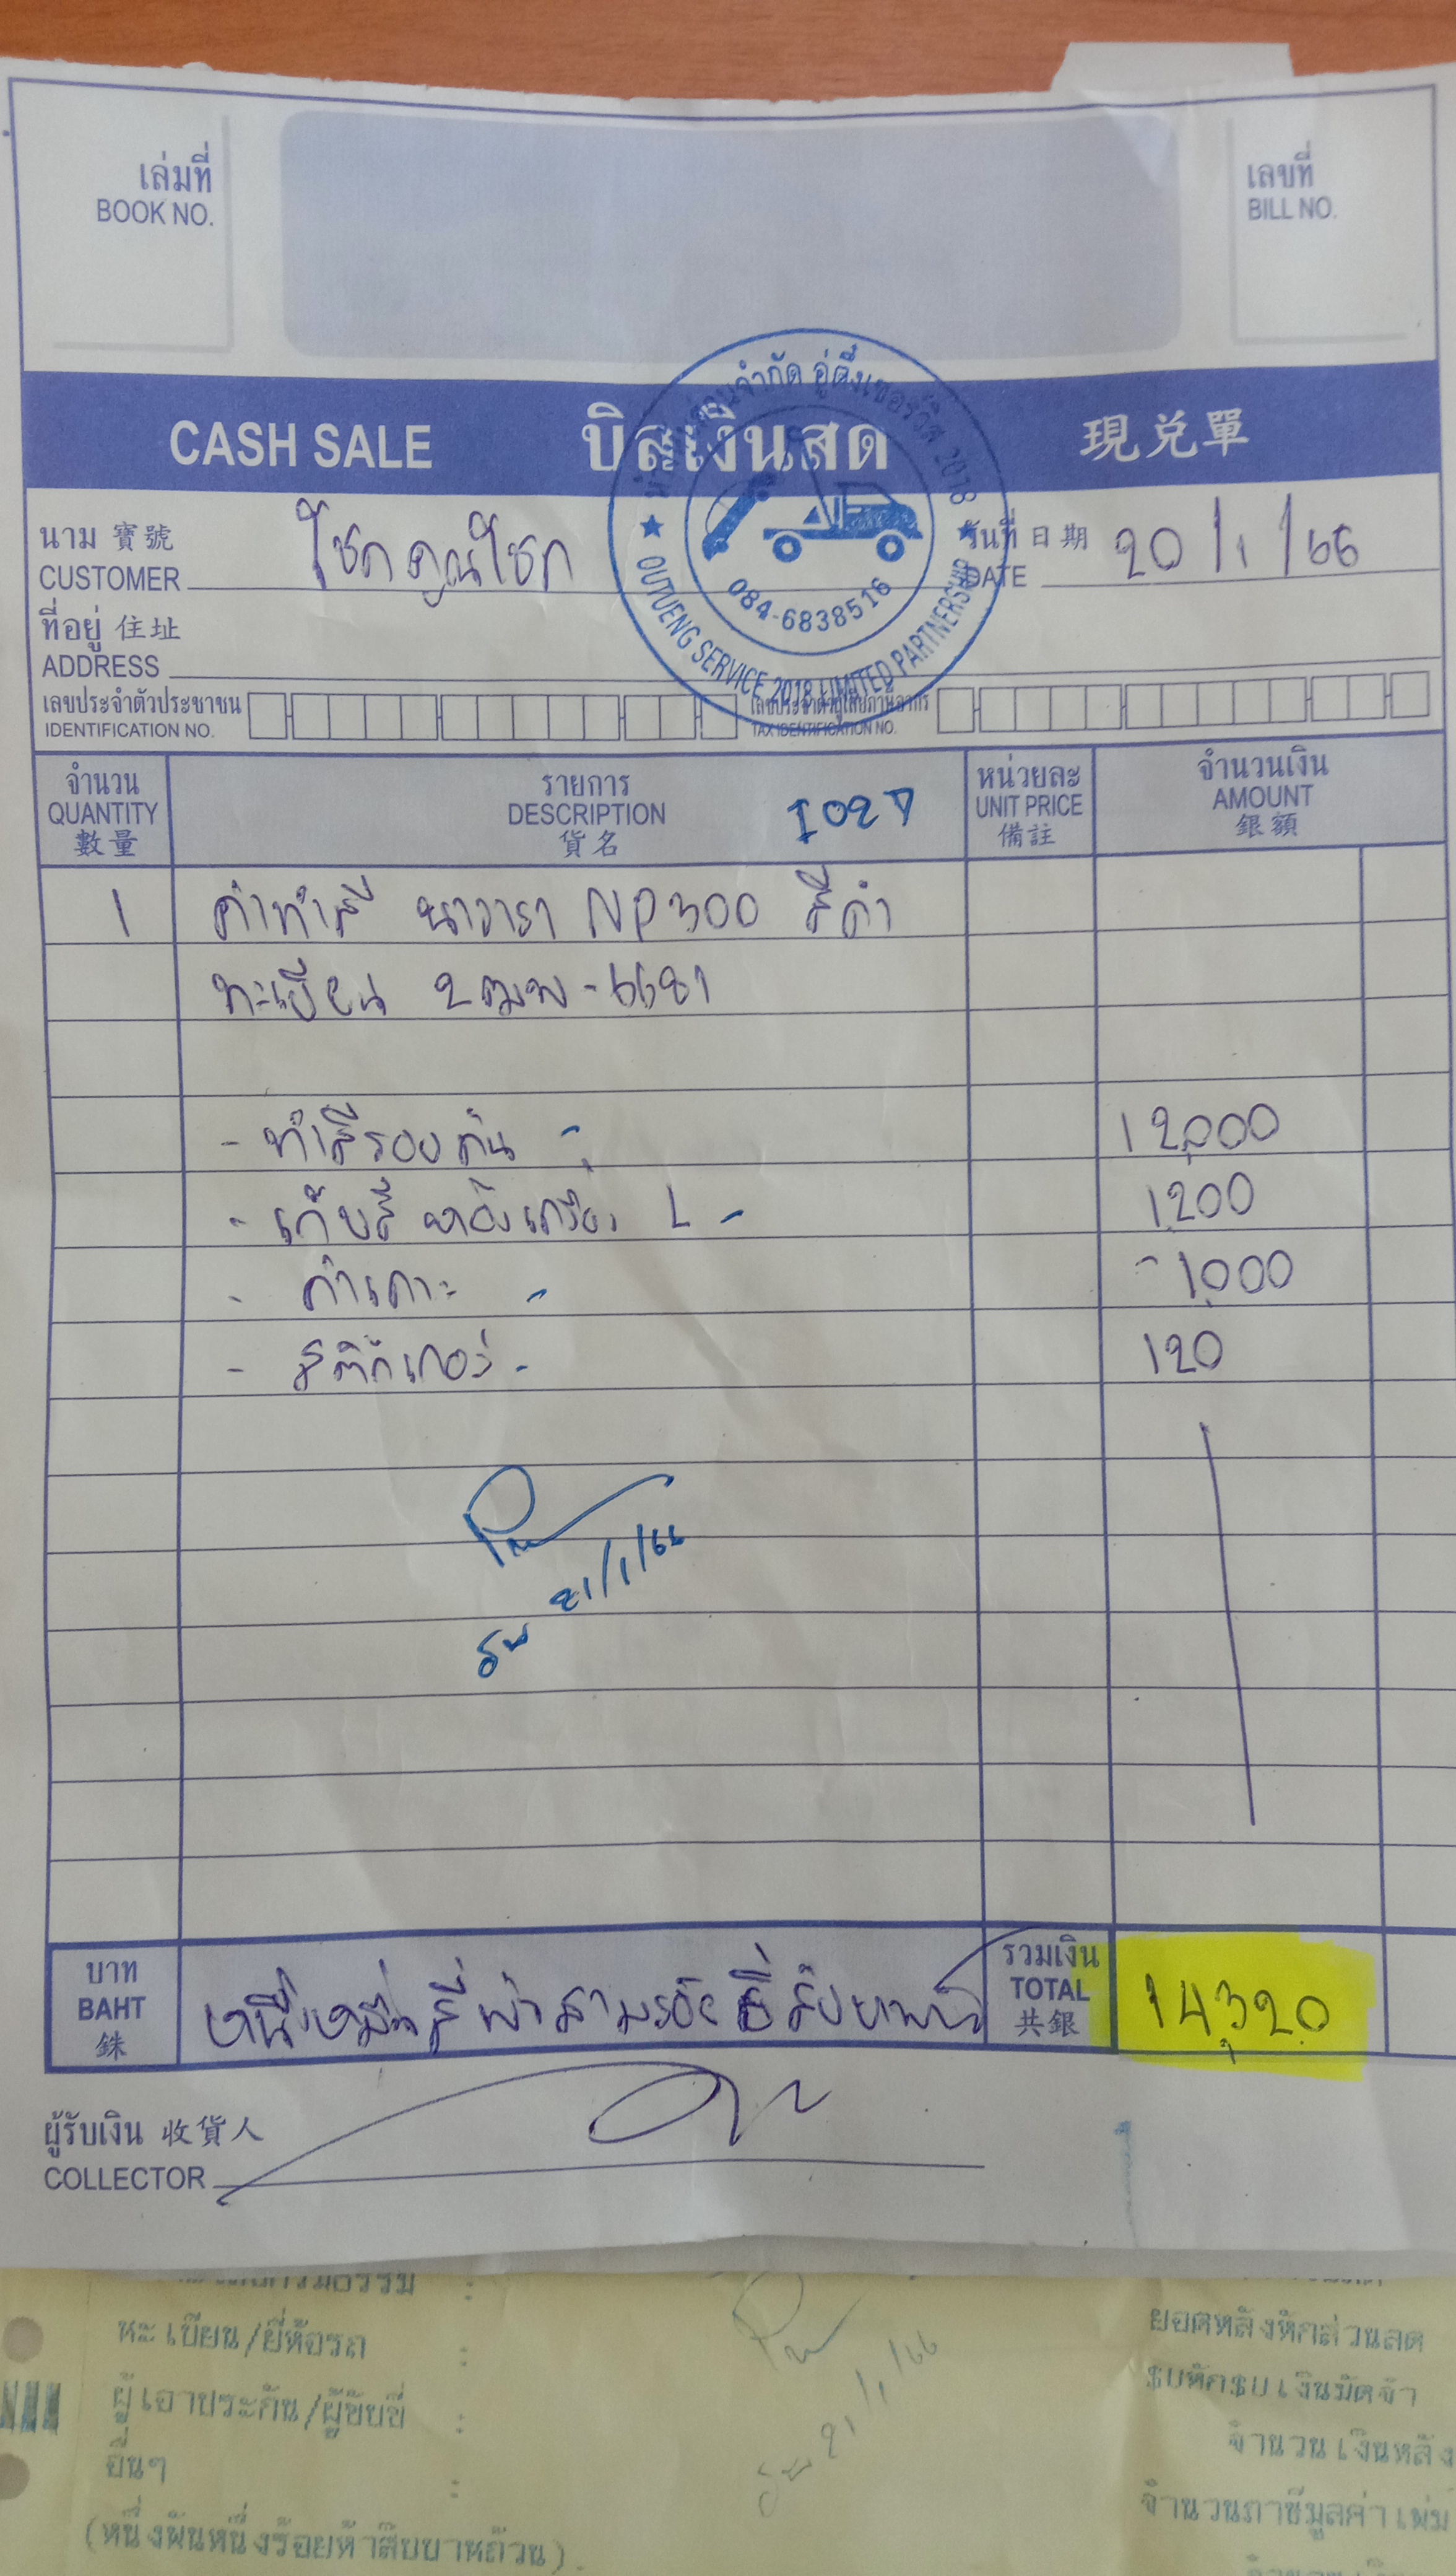 เล่มที่
BOOK NO.
เลขที่
BILL NO.
CASH SALE บิลเงินสด 現兑單
ห้างหุ้นส่วนจำกัด อู่ตึ๋งเซอร์วิส 2018
084-6838516
OUTUENG SERVICE 2018 LIMITED PARTNERSHIP
นาม 寶號
CUSTOMER โชคคูณโชค
วันที่ 日期
DATE 20/1/66
ที่อยู่ 住址
ADDRESS
เลขประจำตัวประชาชน
IDENTIFICATION NO.
เลขประจำตัวผู้เสียภาษีอากร
TAX IDENTIFICATION NO.
จำนวน
QUANTITY
數量
รายการ
DESCRIPTION
貨名
หน่วยละ
UNIT PRICE
備註
จำนวนเงิน
AMOUNT
銀額
1 ค่าทำสี นาวารา NP300 สีดำ
ทะเบียน 2ฒฬ-6681
- ทำสีรอบคัน 12,000
- เก็บสี ห้องเครื่อง L - 1,200
- ค่าเคาะ - 1,000
- สติ๊กเกอร์ - 120
21/1/66
บาท
BAHT
銖
หนึ่งหมื่นสี่พันสามร้อยยี่สิบบาท
รวมเงิน
TOTAL
共銀
14,320
ผู้รับเงิน 收貨人
COLLECTOR
ทะเบียน/ยี่ห้อรถ :
ผู้เอาประกัน/ผู้ขับขี่ :
อื่นๆ :
(หนึ่งพันหนึ่งร้อยห้าสิบบาทถ้วน)
21/1/66
ยอดหลังหักส่วนลด
เงินมัดจำ
จำนวนเงินหลัง
จำนวนภาษีมูลค่าเพิ่ม